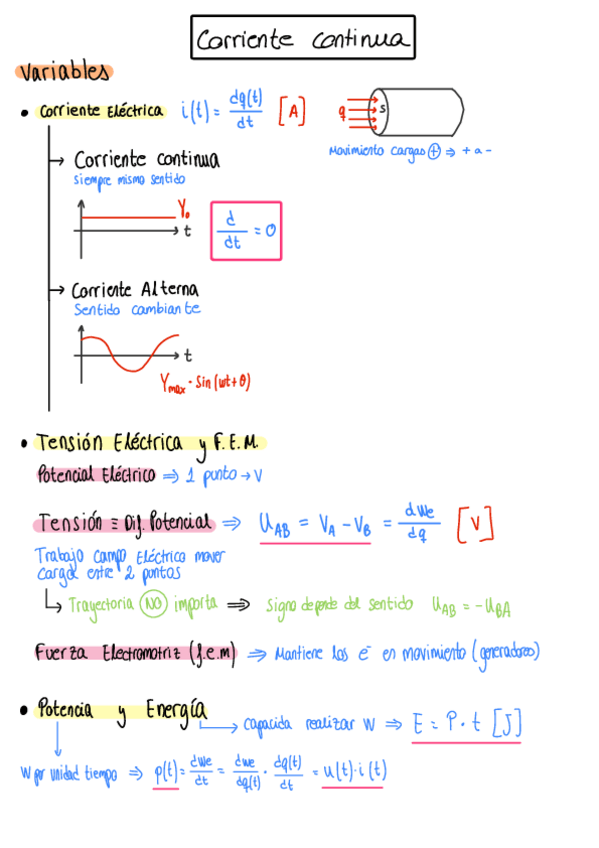 Corriente continua
Variables
• Corriente Eléctrica i(t) = dq(t)/dt [A]
q S
Movimiento cargas ⊕ ⇒ + a -
→ Corriente continua
Siempre mismo sentido
Y₀
t
d/dt = 0
→ Corriente Alterna
Sentido cambiante
t
Ymax · Sin(wt + θ)
• Tensión Eléctrica y F.E.M.
Potencial Eléctrico ⇒ 1 punto → V
Tensión ≡ Dif. Potencial ⇒ U_AB = V_A - V_B = dWe/dq [V]
Trabajo campo Eléctrico mover
cargas entre 2 puntos
↳ Trayectoria NO importa ⇒ Signo depende del sentido U_AB = -U_BA
Fuerza Electromotriz (f.e.m) ⇒ Mantiene los e⁻ en movimiento (generadores)
• Potencia y Energía
→ capacida realizar W ⇒ E = P · t [J]
W por unidad tiempo ⇒ p(t) = dWe/dt = dWe/dq(t) · dq(t)/dt = u(t) · i(t)